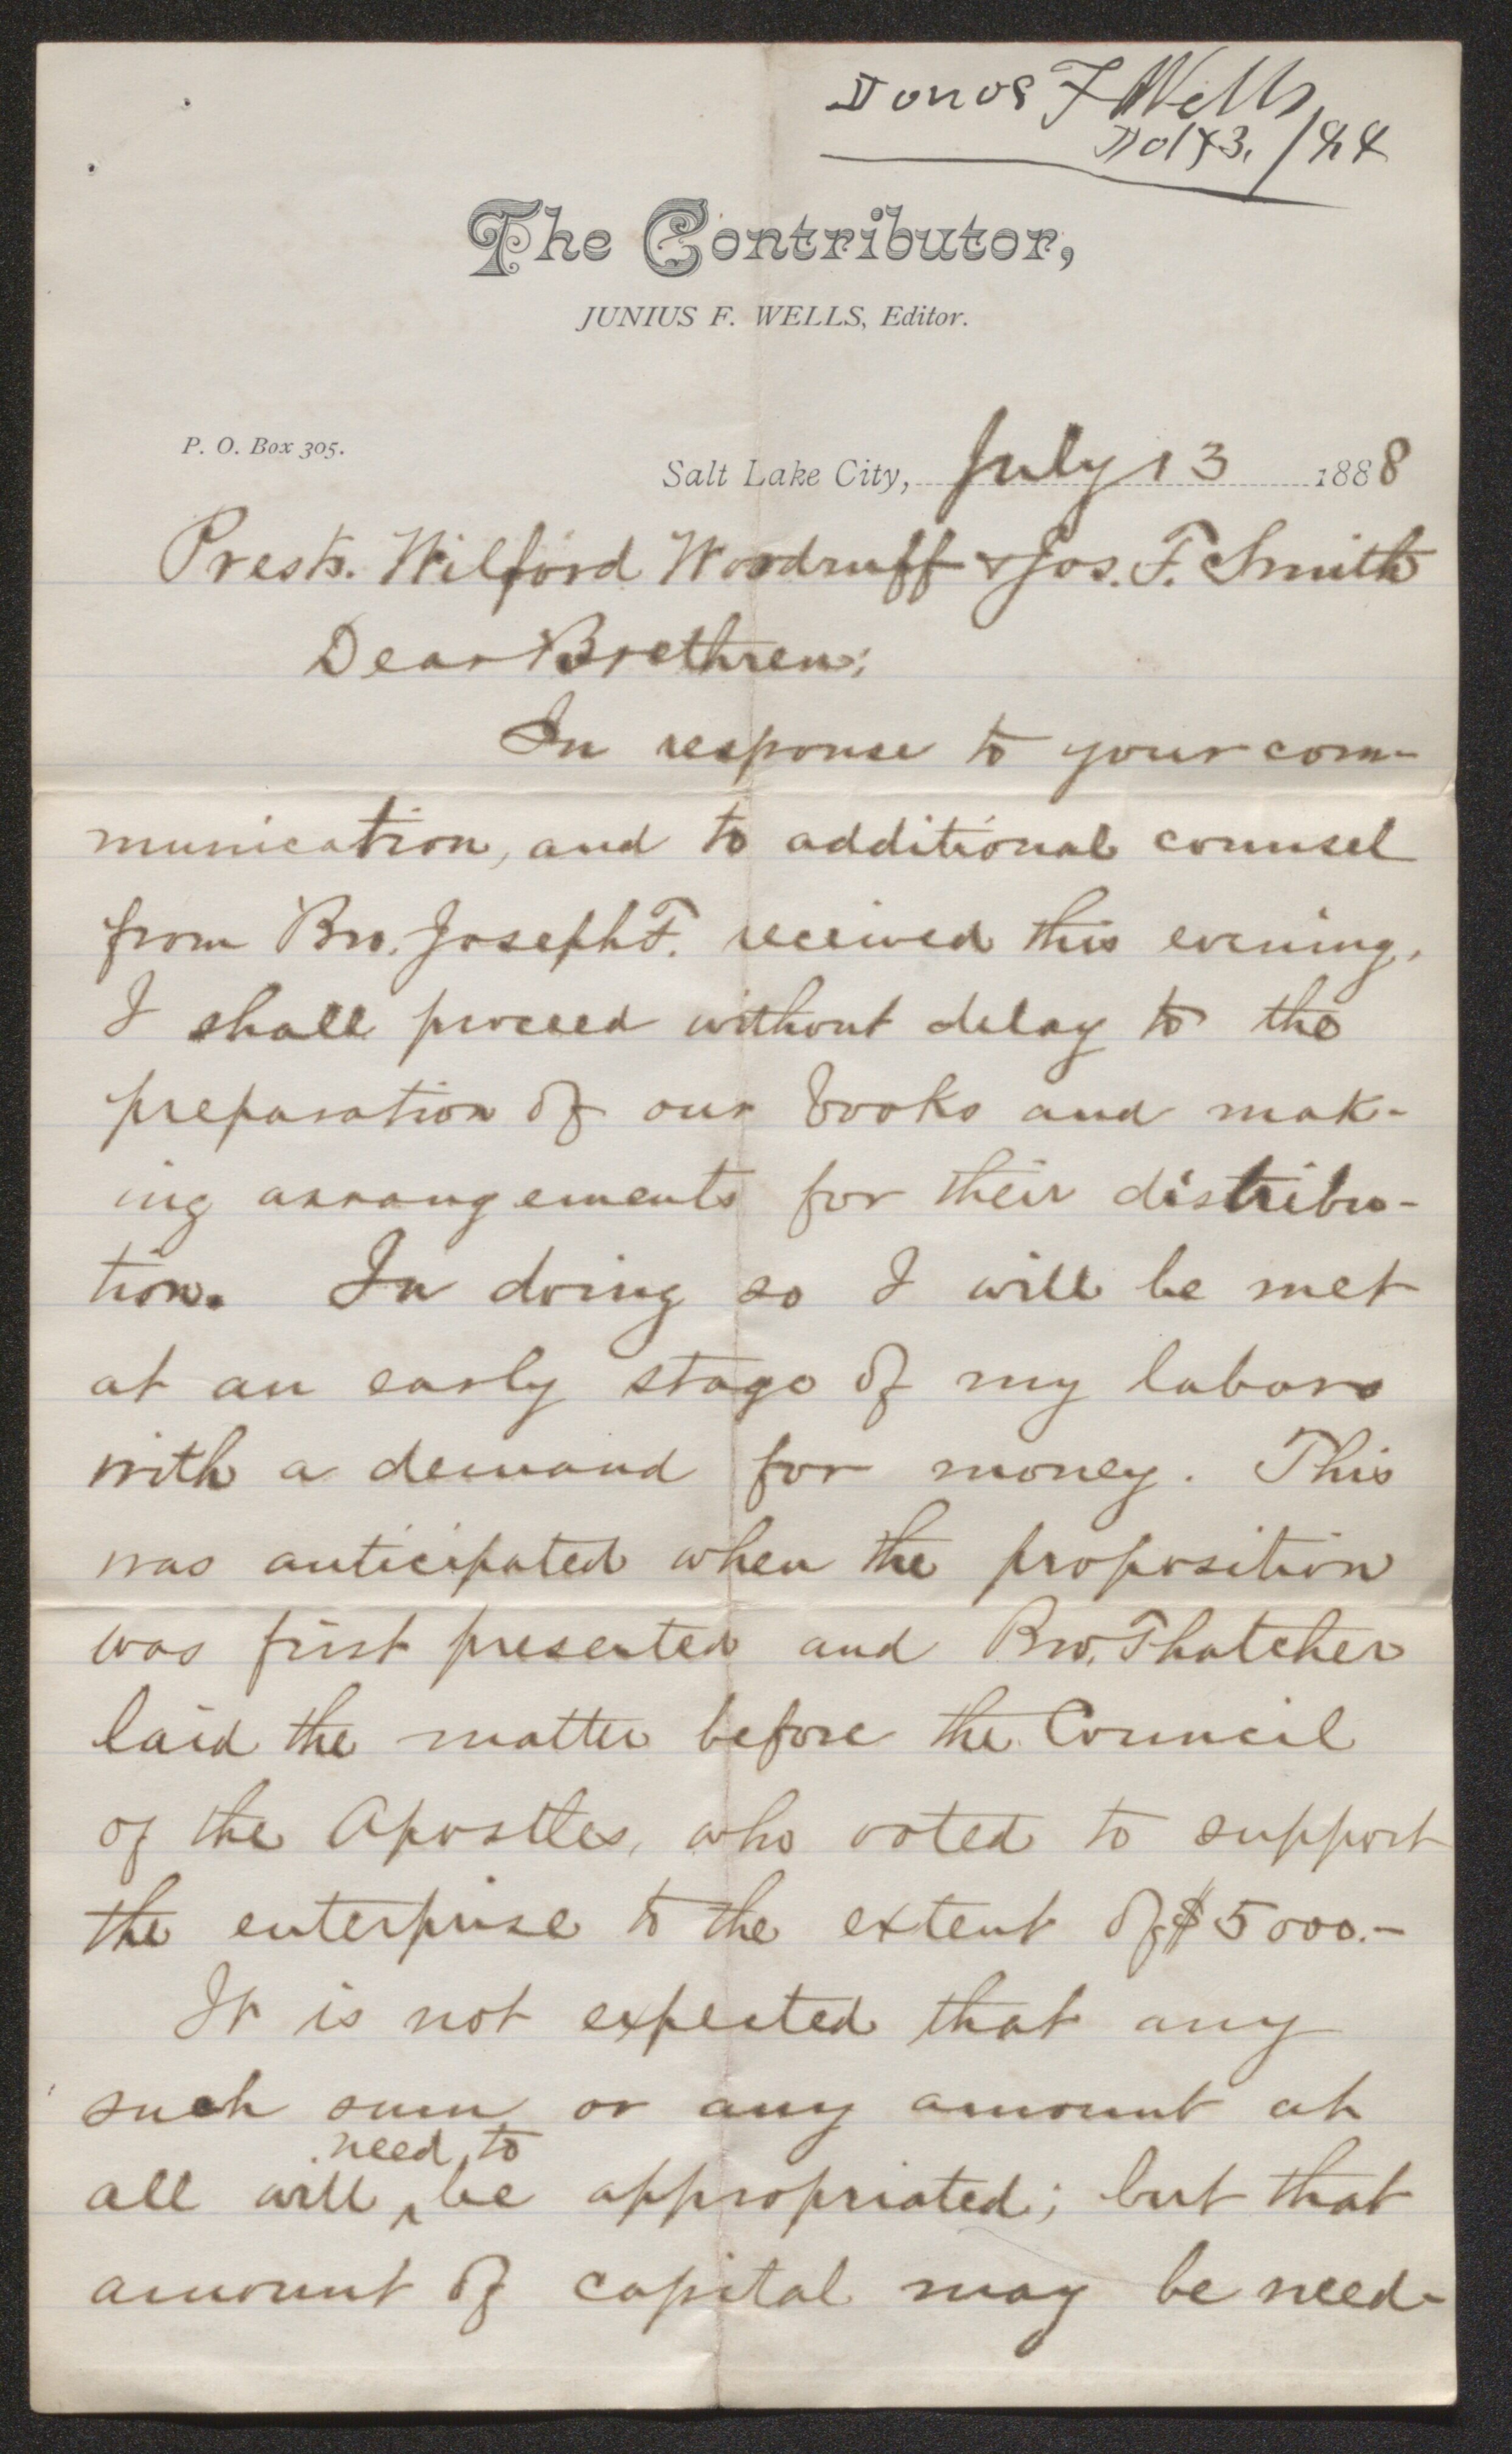 F Wells
The Contributor,
JUNIUS F. WELLS, Editor.
P. O. Box 305.
Salt Lake City, July 13 1888
Prests. Wilford Woodruff & Jos. F. Smith
Dear Brethren;
In response to your com-
munication, and to additional counsel
from Bro. Joseph F. received this evening,
I shall proceed without delay to the
preparation of our books and mak-
ing arrangements for their distribu-
tion. In doing so I will be met
at an early stage of my labors
with a demand for money. This
was anticipated when the proposition
was first presented and Bro. Thatcher
laid the matter before the Council
of the Apostles, who voted to support
the enterprise to the extent of $5000.-
It is not expected that any
such sum or any amount at
need to
all will ‸ be appropriated; but that
amount of capital may be need-